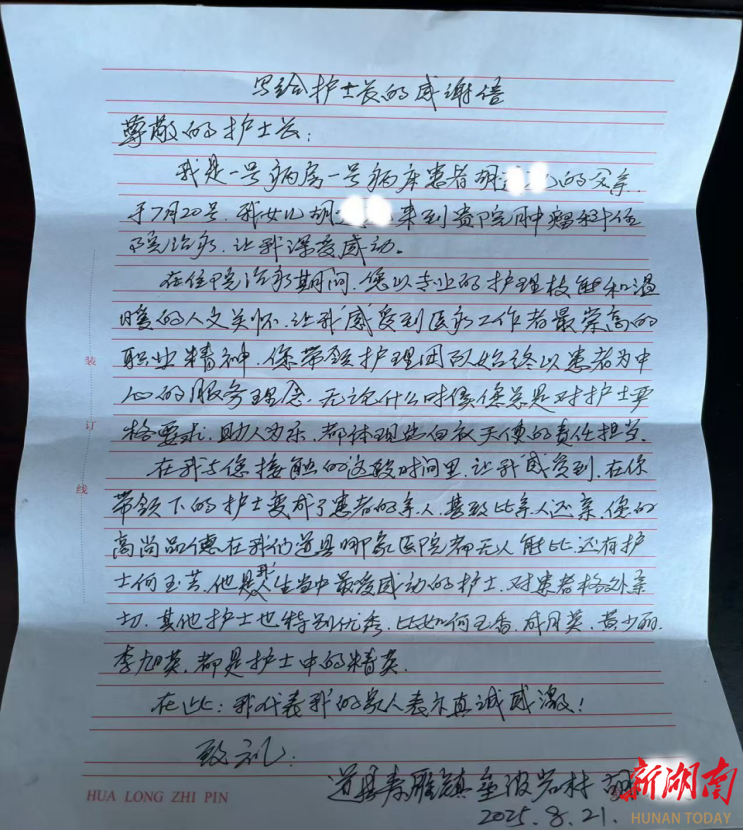 写给护士长的感谢信
尊敬的护士长：
我是一号病房一号病床患者胡的父亲.
于7月20号.我女儿胡.来到贵院肿瘤科住
院治疗.让我深受感动。
在住院治疗期间.您以专业的护理技能和温
暖的人文关怀.让我感受到医疗工作者最崇高的
职业精神.您带领护理团队始终以患者为中
心的服务理念.无论什么时候您总是对护士严
格要求.助人为乐.都体现出白衣天使的责任担当.
在我与您接触的这段时间里.让我感受到.在你
带领下的护士变成了患者的亲人.甚致比亲人还亲.您的
高尚品德在我们道县哪家医院都无以能比.还有护
士何玉芳.他是我人生当中最受感动的护士.对患者格外亲
切.其他护士也特别优秀.比如何玉香.成月英.黄少丽.
李旭英.都是护士中的精英.
在此：我代表我的家人表示真诚感激！
致礼：
道县寿雁镇岩村 胡
2025.8.21.
装
订
线
HUA LONG ZHI PIN
新湖南
HUNAN TODAY